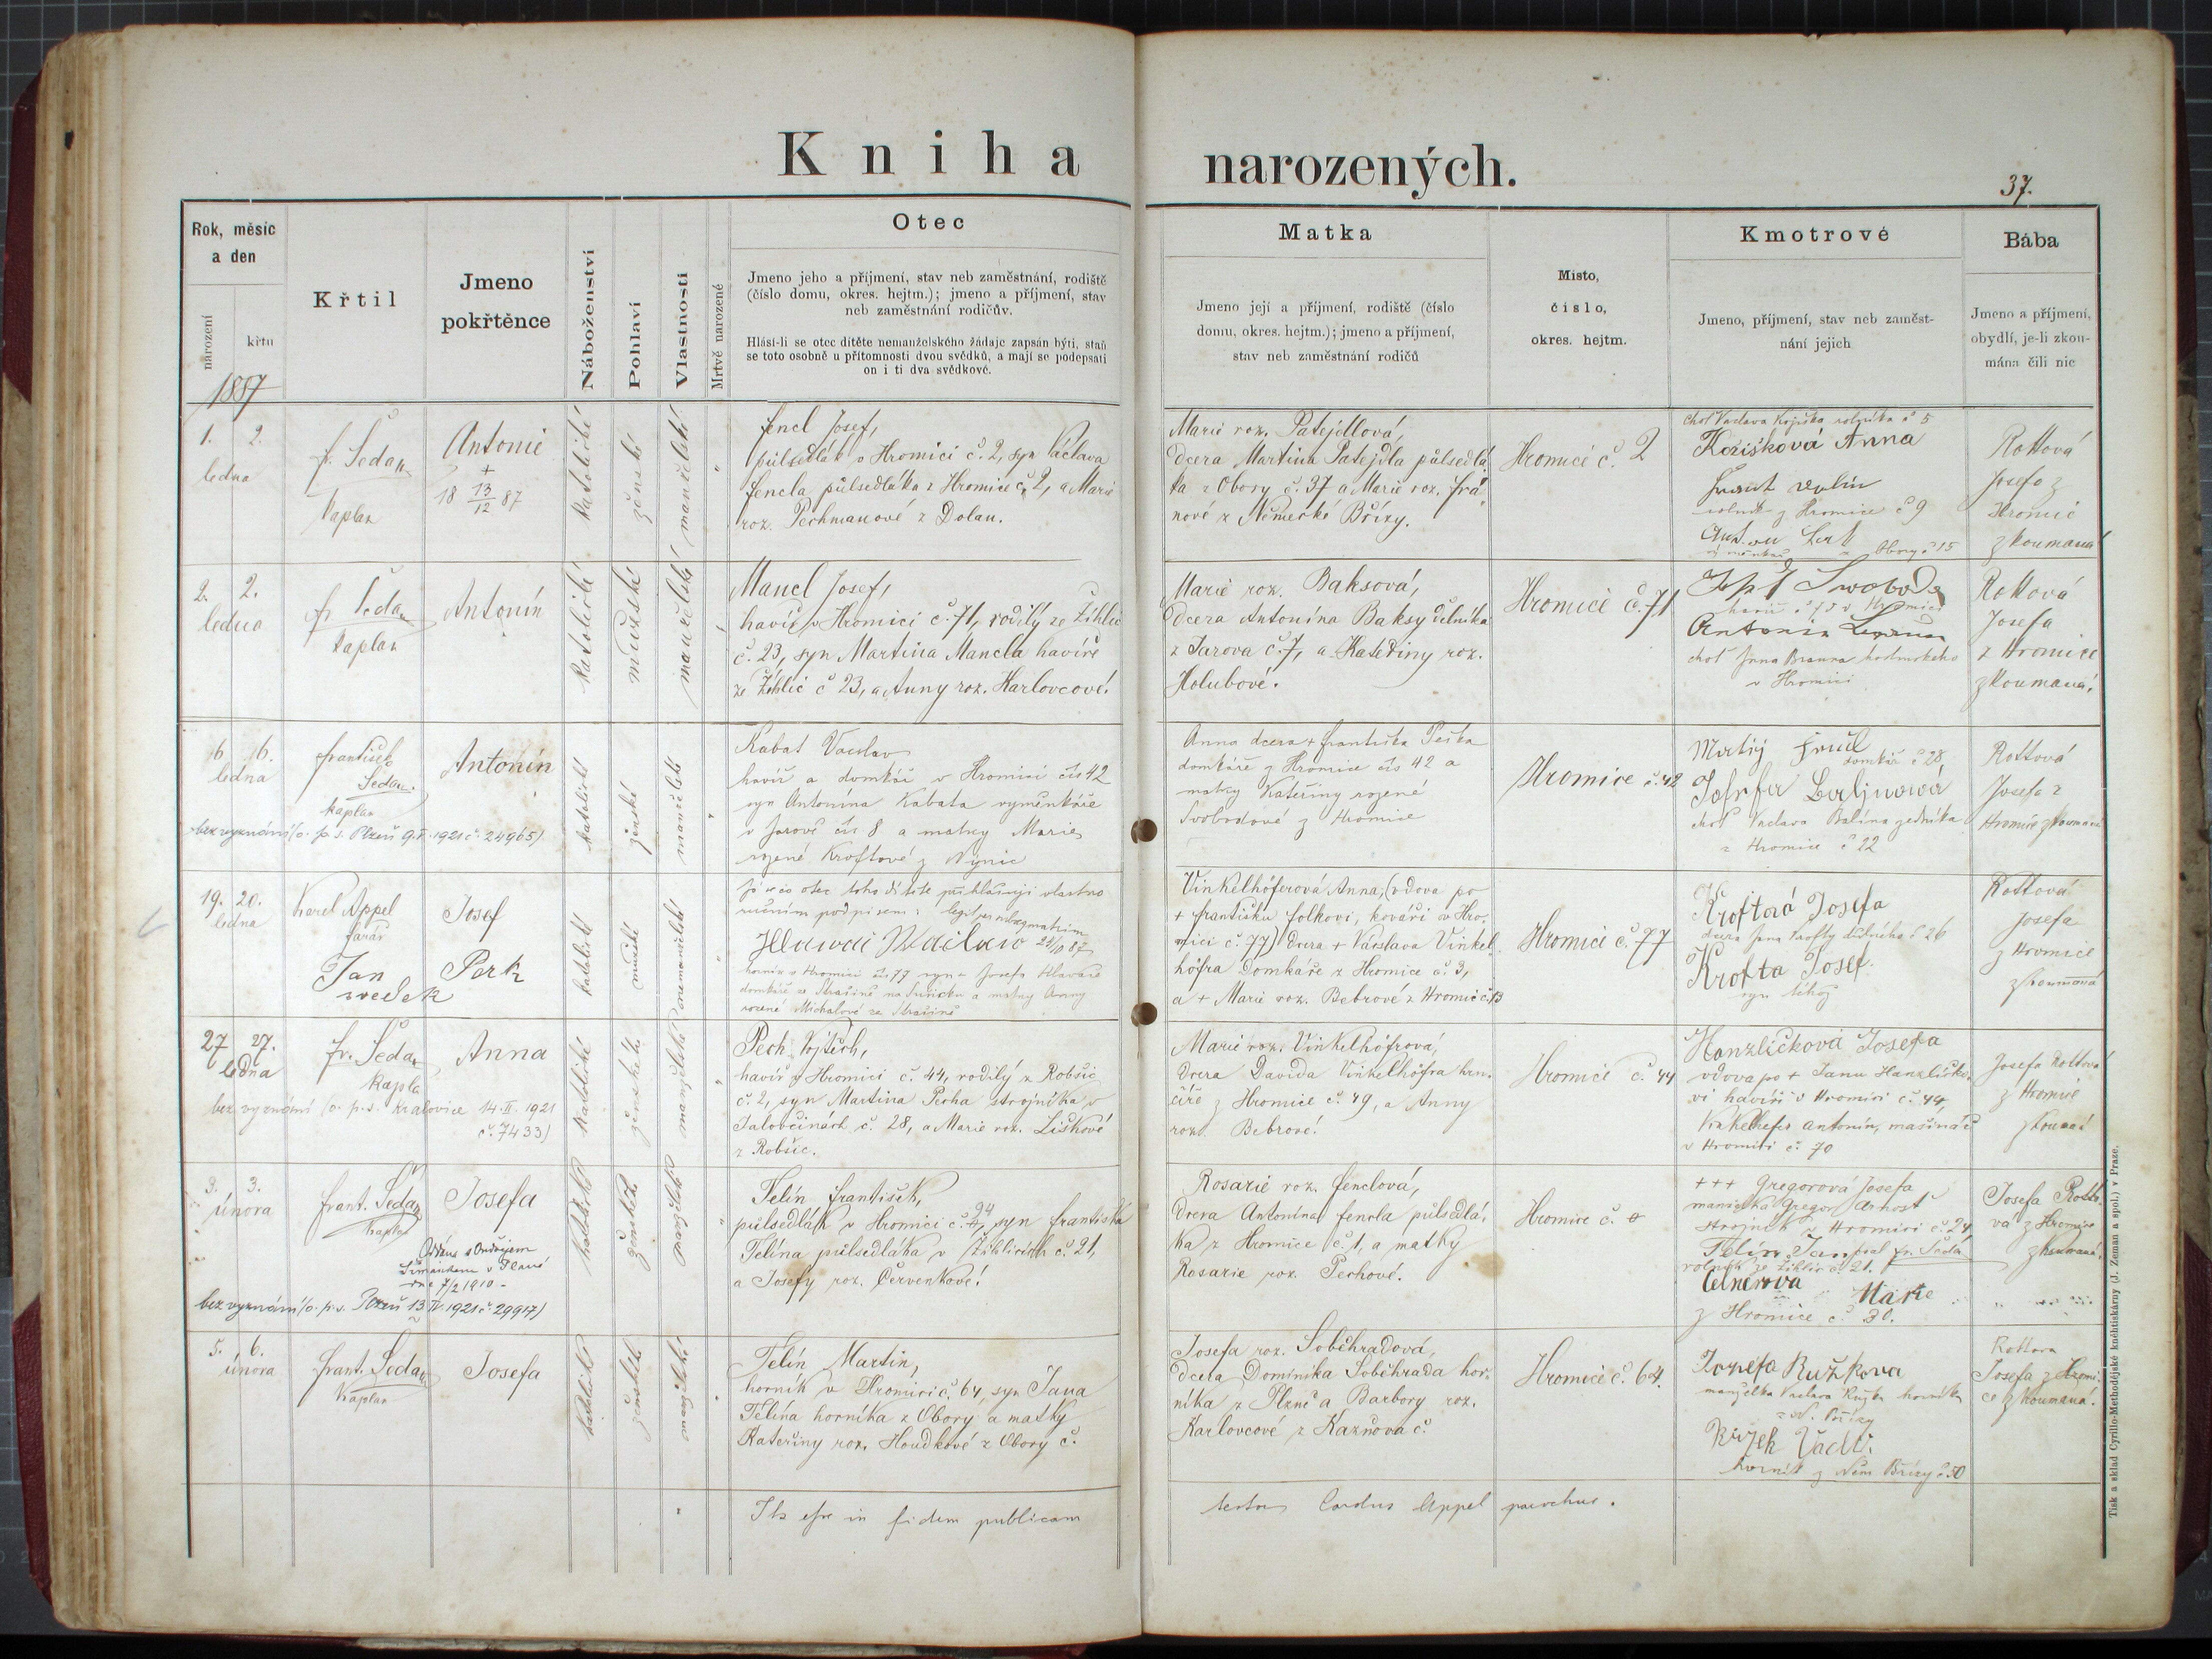 Kniha narozených.
37.
Rok, měsíc a den
narození
křtu
Křtil
Jmeno
pokřtěnce
Náboženství
Pohlaví
Vlastnosti
Mrtvě narozené
Otec
Jmeno jeho a příjmení, stav neb zaměstnání, rodiště
(číslo domu, okres. hejtm.); jmeno a příjmení, stav
neb zaměstnání rodičův.
Hlásí-li se otec dítěte nemanželského žádaje zapsán býti, staň
se toto osobně u přítomnosti dvou svědků, a mají se podepsati
on i ti dva svědkové.
Matka
Jmeno její a příjmení, rodiště (číslo
domu, okres. hejtm.); jmeno a příjmení,
stav neb zaměstnání rodičů
Místo,
číslo,
okres. hejtm.
Kmotrové
Jmeno, příjmení, stav neb zaměst-
nání jejich
Bába
Jmeno a příjmení,
obydlí, je-li zkou-
mána čili nic
1887
1. 2.
ledna
f. Šedan
kaplan
Antonie
+
18 13/12 87
katolické
ženské
manželské
"
Fencl Josef,
půlsedlák v Hromici č. 2, syn Václava
Fencla půlsedláka z Hromice č. 2, a Marie
roz. Pechmanové z Dolan.
Marie roz. Patejdlová,
dcera Martina Patejdla půlsedlá-
ka z Obory č. 37 a Marie roz. Frá-
nové z Německé Břízy.
Hromice č. 2
choť Vaclava Kojiška rolníka č 5
Kožišková Anna
rolník z Hromice č 9
Obory č 15
Rottová
Josefa z
Hromic
zkoumaná
2. 2.
ledna
fr Šedan
kaplan
Antonín
katolické
mužské
manželské
Mancl Josef,
havíř v Hromici č. 71, rodilý ze Žihlic
č. 23, syn Martina Mancla havíře
ze Žihlic č 23, a Anny roz. Karlovcové.
Marie roz. Baksová,
dcera Antonína Baksy dělníka
z Jarova č. 7, a Kateřiny roz.
Holubové.
Hromice č. 71
Josef Swoboda
Antonia
choť Jana Brauna hostinského
v Hromici
Rottová
Josefa
z Hromice
zkoumaná.
6. 16.
ledna
František
Šedan.
kaplan
Antonín
bez vyznání (o. p. s. Plzeň 1921 č. 24965)
katolické
manželské
"
Kabat Vaclav
havíř a domkář v Hromici čís 42
syn Antonína Kabata vyměnkáře
v Jarově čís 8 a matky Marie
rozené Kroftové z Nynic
Anna dcera + Františka Peška
domkáře z Hromice čís 42 a
matky Kateřiny rozené
Svobodové z Hromice
Hromice č. 42
domkář č 28,
choť Vaclava Balina zedníka
z Hromice č 22
Rottová
Josefa z
Hromice zkoumaná
19. 20.
ledna
Karel Appel
farář
Jan Perk
svedek
Josef
katolické
mužské
nemanželské
"
Já co otec toho dítěte přihlašuji vlastno
ručním podpisem:
havíř v Hromici čís 77 syn + Josefa Hlaváče
domkáře ze Strašína na Sušicku a matky Anny
rozené Michalové ze Strašína
Vinkelhöferová Anna, (vdova po
+ Františku Folkovi, kováři v Hro-
mici č. 77) dcera + Václava Vinkel-
höfra domkáře z Hromice č. 3,
a + Marie roz. Bebrové z Hromic č. 13
Hromice č. 77
Kroftová Josefa
dcera Jana Krofty č 26
Krofta Josef.
syn téhož
Rottová
Josefa
z Hromice
zkoumaná
27 27.
ledna
fr. Šedan
kaplan
Anna
bez vyznání (o. p. s. Kralovice 14. II. 1921
č. 7433)
katolické
ženské
manželské
"
Pech Vojtěch,
havíř z Hromici č. 44, rodilý z Robčic
č. 2, syn Martina Pecha strojníka v
Jalovčinách č. 28, a Marie roz. Liškové
z Robčic.
Marie roz. Vinkelhöfrová,
dcera Davida Vinkelhöfra hrn-
číře z Hromice č. 49, a Anny
roz. Bebrové.
Hromice č. 44
Hanzlíčková Josefa
vdova po + Janu Hanzlíčko-
vi havíři v Hromici č. 44
Antonín, mašinář
v Hromici č. 70
Josefa Rottová
z Hromic
zkoumaná
3. 3.
února
frant. Šedan
kaplan
Josefa
Oddána s Ondřejem
Šimánkem v Plané
dne 7/2 1910 -
bez vyznání (o. p. s. Plzeň 13 IV. 1921 č. 29917)
katolické
ženské
manželské
"
Telín František,
půlsedlák v Hromici č. 24, syn Františka
Telína půlsedláka v Žihlicích č. 21,
a Josefy roz. Červenkové.
Rosarie roz. Fenclová,
dcera Antonína Fencla půlsedlá-
ka z Hromice č. 1, a matky
Rosarie roz. Pechové.
Hromice č.
+++ Gregorová Josefa
manželka Gregor Arnošt
strojník z Hromici č. 24,
Telín Jan psal fr. Šedan
rolník ze Žihlic č. 21.
Marie
z Hromice č. 30.
Josefa Rotto-
vá z Hromice
zkoumaná.
5. 6.
února
frant. Šedan
kaplan
Josefa
katolické
ženské
manželské
"
Telín Martin,
horník v Hromici č. 64, syn Jana
Telína horníka z Obory a matky
Kateřiny roz. Houdkové z Obory č.
Josefa roz. Soběhradová,
dcera Dominika Soběhrada hor-
níka z Plzně a Barbory roz.
Karlovcové z Kaznova č.
Hromice č. 64.
Josefa Ružkova
manželka Vaclava Ružka horníka
z N. Břízy
horník z Něm Břízy č 50
Rottova
Josefa z Hromi-
ce zkoumaná.
Ita esse in fidem publicam
testor Carolus Appel parochus.
Tisk a sklad Cyrillo-Methodějské knihtiskárny (J. Zeman a spol.) v Praze.